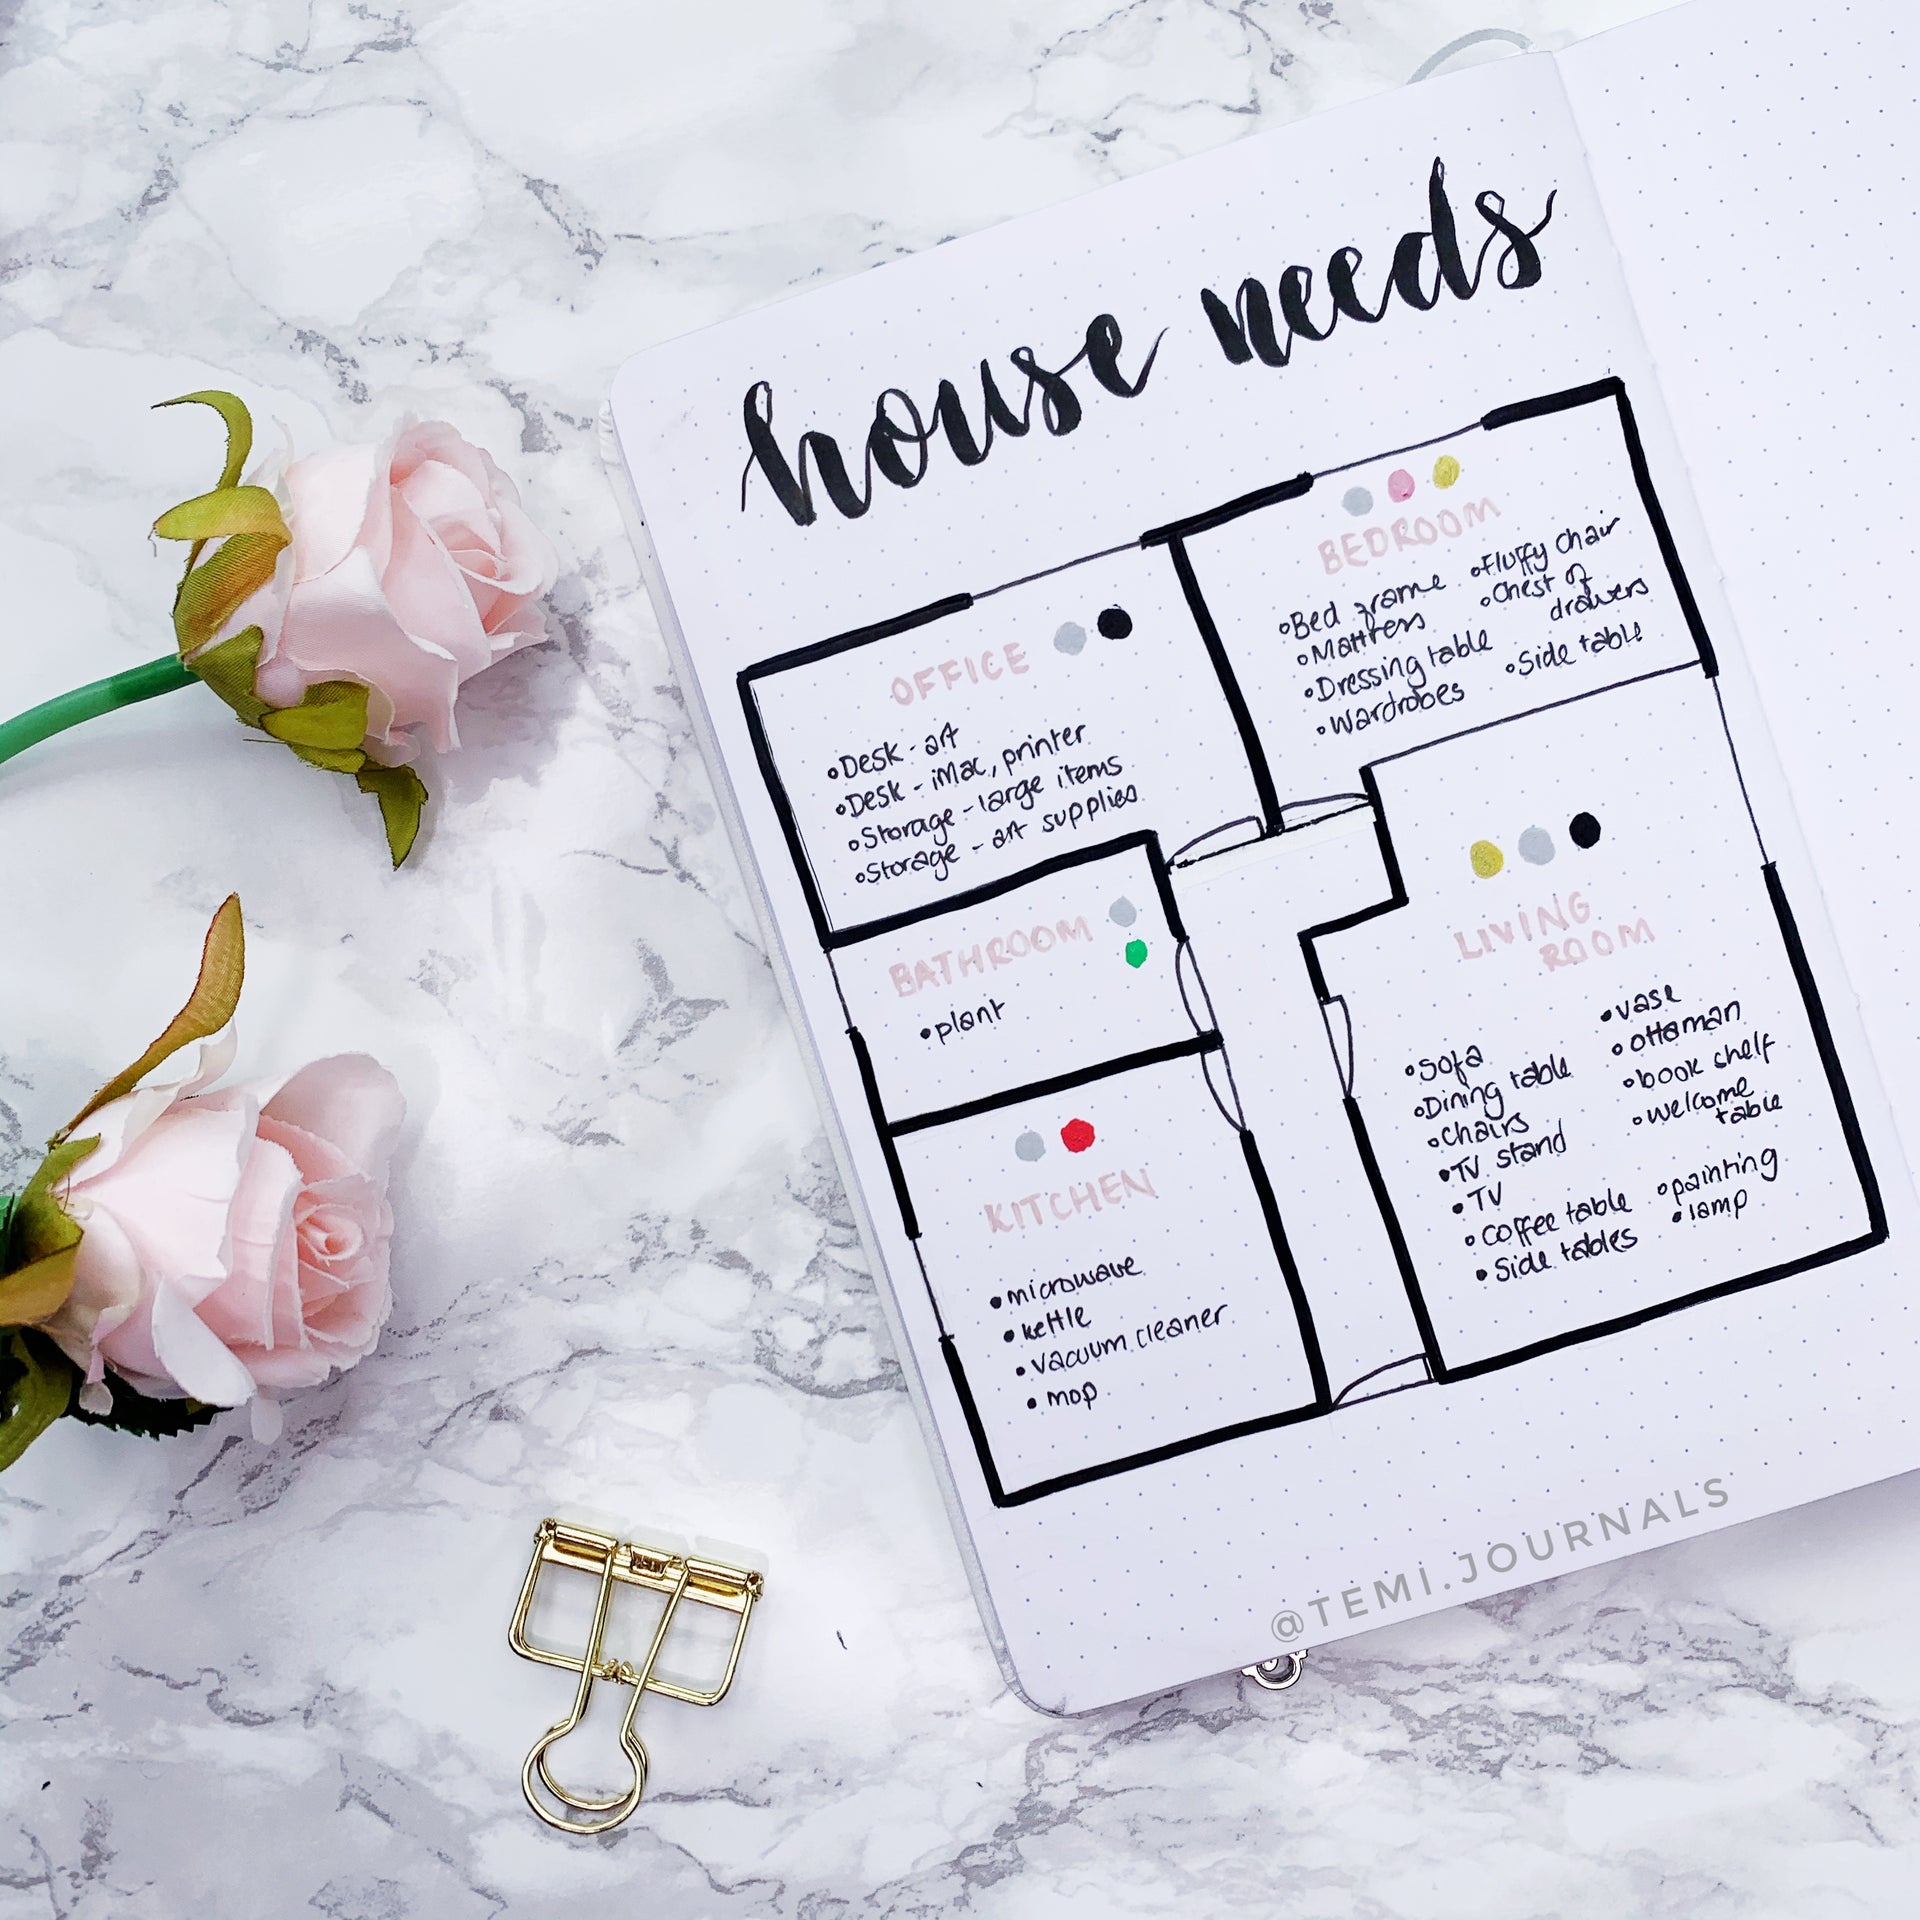 house needs
OFFICE
•Desk - art
•Desk - iMac, printer
•Storage - large items
•Storage - art supplies
BEDROOM
•Bed frame
•Mattress
•Dressing table
•Wardrobes
•Fluffy chair
•Chest of
drawers
•Side table
BATHROOM
•plant
LIVING
ROOM
•Sofa
•Dining table
•Chairs
•TV stand
•TV
•coffee table
•Side tables
•vase
•ottaman
•book shelf
•welcome
table
•painting
•lamp
KITCHEN
•microwave
•kettle
•vacuum cleaner
•mop
@TEMI.JOURNALS